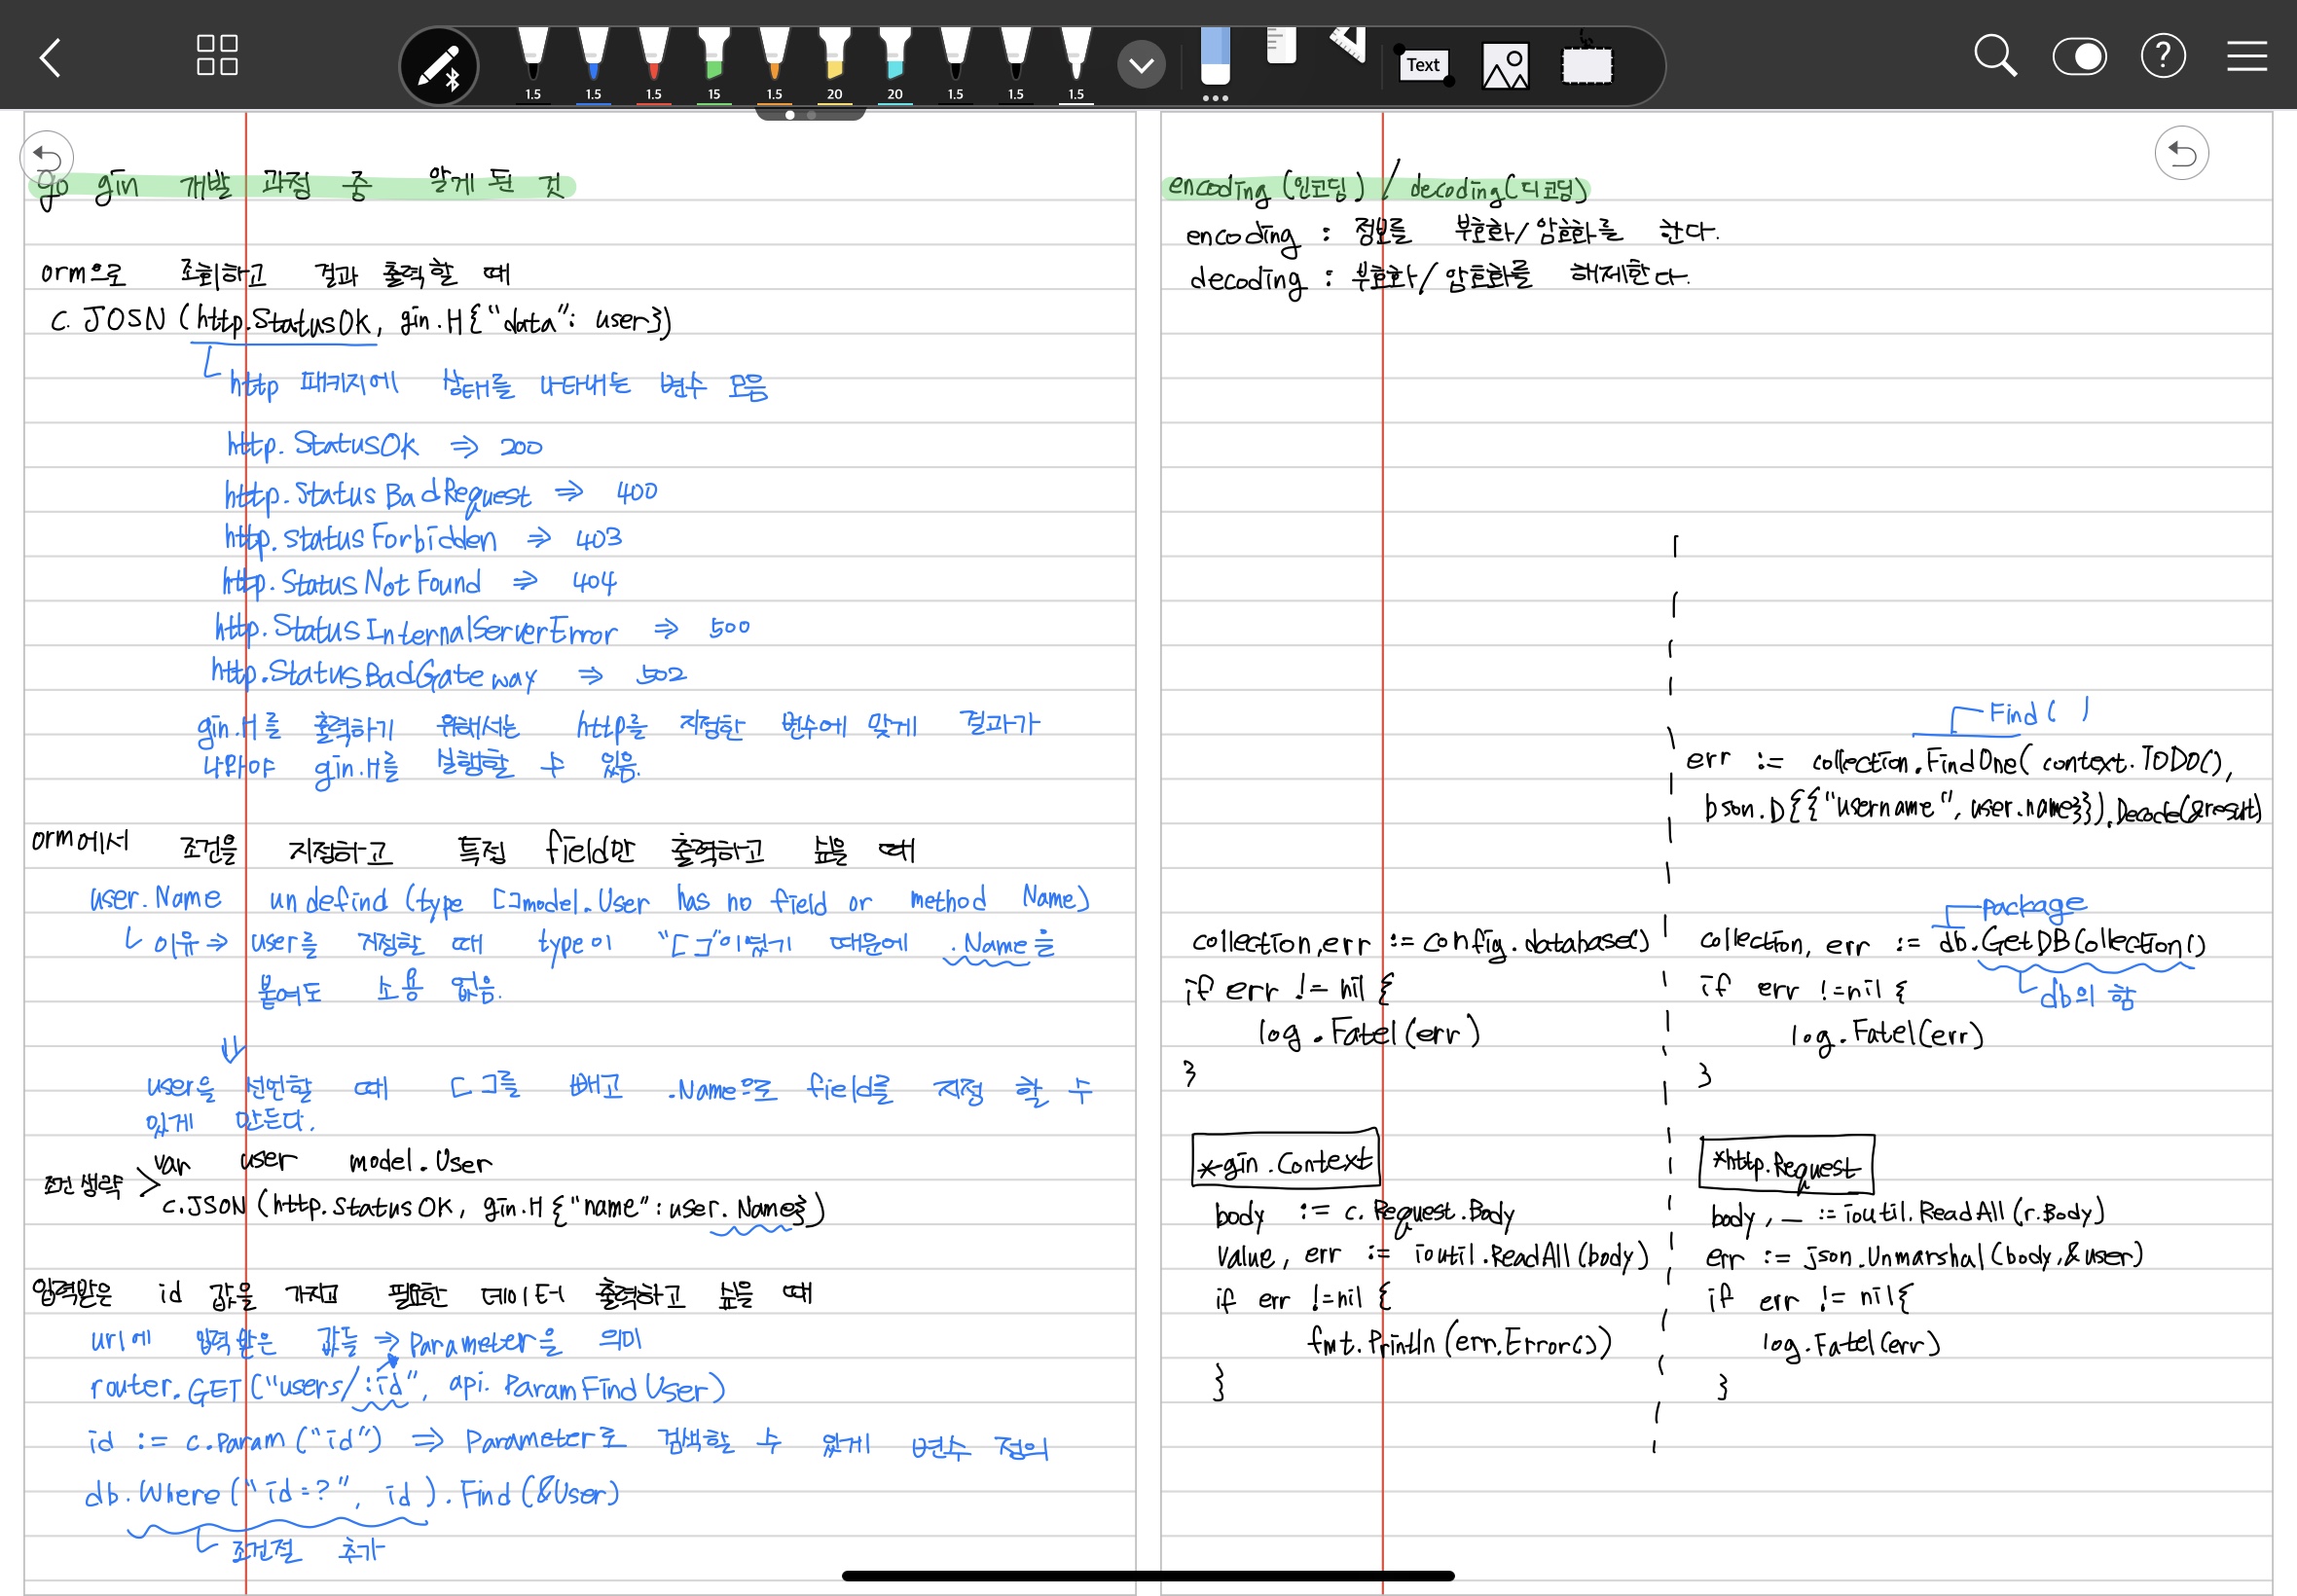 1.5 1.5 1.5 15 1.5 20 20 1.5 1.5 1.5
Text
?
go gin 개발 과정 중 알게 된 것
orm으로 조회하고 결과 출력할 때
c. JOSN (http.StatusOk, gin.H{"data": user})
http 패키지에 상태를 나타내는 변수 모음
http.StatusOk ⇒ 200
http.Status BadRequest ⇒ 400
http.StatusForbidden ⇒ 403
http.Status Not Found ⇒ 404
http.StatusInternalServerError ⇒ 500
http.StatusBadGateway ⇒ 502
gin.H를 출력하기 위해서는 http를 지정한 변수에 맞게 결과가
나와야 gin.H를 실행할 수 있음.
orm에서 조건을 지정하고 특정 field만 출력하고 싶을 때
user.Name undefind (type []model.User has no field or method Name)
이유 ⇒ user를 지정할 때 type이 "[]"이었기 때문에 .Name을
붙여도 소용 없음.
user을 선언할 때 []를 빼고 .Name으로 field를 지정 할 수
있게 만든다.
var user model.User
조건 생략 > c.JSON (http.StatusOK, gin.H{"name": user.Name})
입력받은 id 값을 가지고 필요한 데이터 출력하고 싶을 때
url에 입력받은 값들 ⇒ Parameter을 의미
router.GET("users/:id", api.ParamFindUser)
id := c.Param("id") ⇒ Parameter로 검색할 수 있게 변수 정의
db.Where("id=?", id).Find(&User)
조건절 추가
encoding (인코딩) / decoding(디코딩)
encoding : 정보를 부호화/암호화를 한다.
decoding : 부호화/암호화를 해제한다.
Find( )
err := collection.FindOne(context.TODO(),
bson.D{{"username", user.name}}).Decode(&result)
collection,err := config.database()
if err != nil {
log.Fatel(err)
}
package
collection, err := db.GetDBCollection()
if err !=nil {
db의 함
log.Fatel(err)
}
*gin.Context
body := c.Request.Body
value, err := ioutil.ReadAll(body)
if err !=nil {
fmt.Println(err.Error())
}
*http.Request
body, _ := ioutil.ReadAll(r.Body)
err := json.Unmarshal(body,&user)
if err != nil{
log.Fatel(err)
}